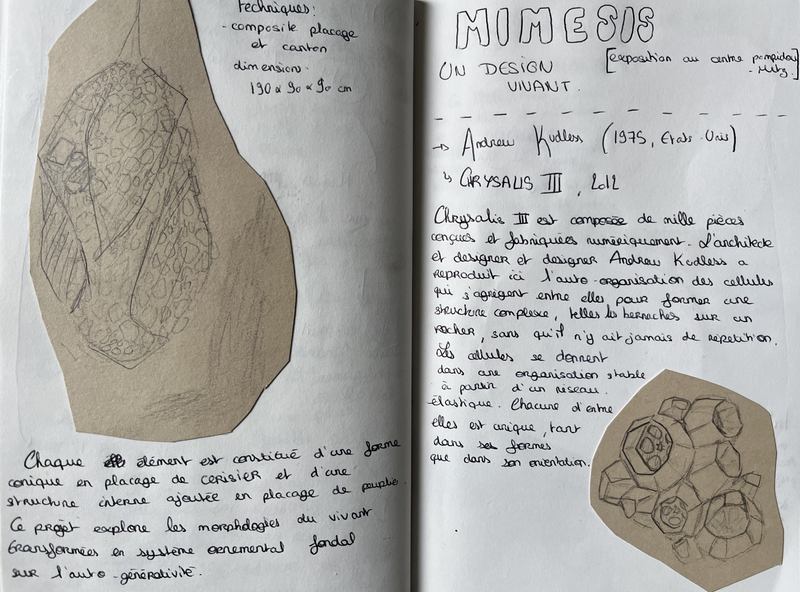 techniques:
- composite placage
et carton
dimensions.
190 x 90 x 90 cm
Chaque élément est constitué d'une forme
conique en placage de cerisier et d'une
structure interne ajoutée en placage de peuplier.
Ce projet explore les morphologies du vivant
transformées en système ornemental fondé
sur l'auto-générativité.
MIMESIS
[exposition au centre pompidou
- Metz.]
UN DESIGN
VIVANT.
→ Andrew Kudless (1975, Etats-Unis)
↳ CHRYSALIS III, 2012
Chrysalis III est composée de mille pièces
conçues et fabriquées numériquement. L'architecte
et designer et designer Andrew Kudless a
reproduit ici l'auto-organisation des cellules
qui s'agrègent entre elles pour former une
structure complexe, telles les bernaches sur un
rocher, sans qu'il n'y ait jamais de répétition.
Les cellules se donnent
dans une organisation stable
à partir d'un réseau.
élastique. Chacune d'entre
elles est unique, tant
dans ses formes
que dans son orientation.